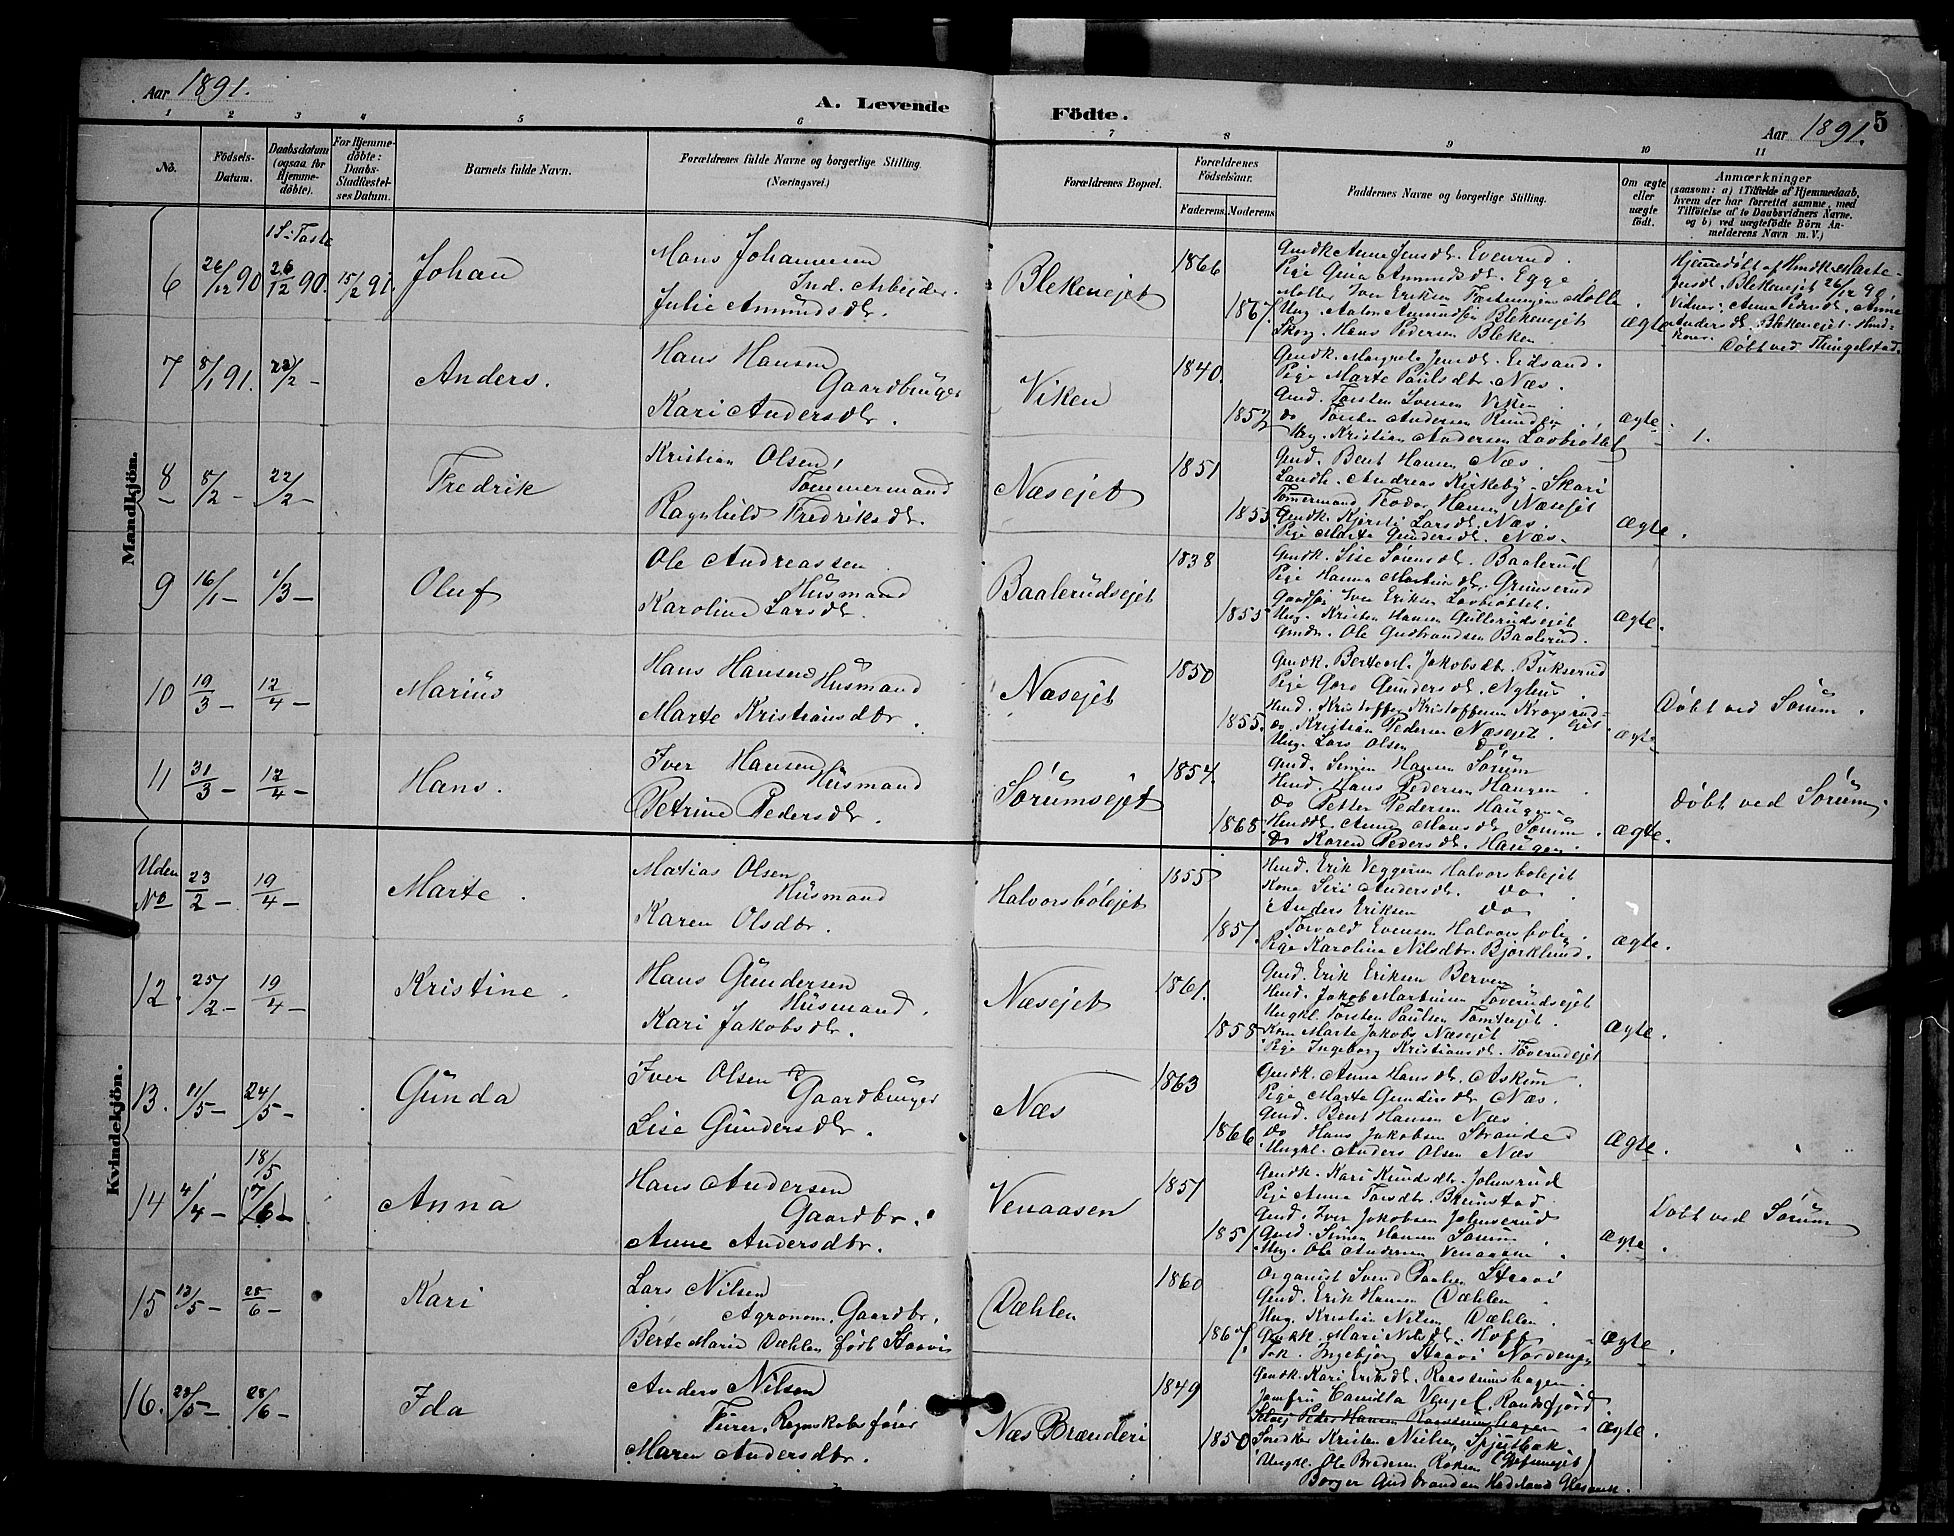 Aar 1891.
A. Levende Födte.
Aar 1891.
5
1 2 3 4 5 6 7 8 9 10 11
No.
Födsels-Datum.
Daabsdatum (ogsaa for Hjemme-döbte).
For Hjemme-döbte: Daabs-Stadfæstel-ses Datum.
Barnets fulde Navn.
Forældrenes fulde Navne og borgerlige Stilling.
(Næringsvei.)
Forældrenes Bopæl.
Forældrenes Födselsaar.
Faderens. Moderens.
Faddernes Navne og borgerlige Stilling.
Om ægte eller uægte födt.
Anmærkninger
(saasom: a) i Tilfælde af Hjemmedaab, hvem der har forrettet samme, med Tilföielse af to Daabsvidners Navne, og b) ved uægtefödte Börn An-melderens Navn m. V.)
Mandkjön.
1 S. i Faste
6 26/12 90 26/12 90. 15/2 91. Johan
Hans Johannesen
Ind. Arbejder.
Julie Amundsdr.
Blekenejet
1866
1867.
Gmdk. Anne Jensdr. Evenrud.
Pige Gina Amundsdr. Egge
Møller Iver Eriksen Mølle
Ung. Anton Amundsen Blekenejet
Skog. Hans Pedersen Bleken
ægte
Hjemmedøbt af Hmdk. Marte
Jensd. Blekenejet 26/12 90.
Vidner: Anna Pedersd. Anne
Andersdr. Blekenejet. Hmd-
koner.
Døbt ved Thingelstad.
7 8/1 91. 22/2 — Anders.
Hans Hansen
Gaardbruger
Kari Andersdr.
Viken
1840.
1852
Gmdk. Margrete Jensdr. Eidsand.
Pige Marte Paulsdtr. Næs.
Gmd. Torsten Iversen Viken
do Torsten Andersen
Ung. Kristian Andersen Løvbrøttet
ægte.
1.
8 8/2 — 22/2 — Fredrik
Kristian Olsen,
Tømmermand
Ragnhild Fredriksdr.
Næsejet
1851
1853
Gmd. Bent Hansen Næs.
Landh. Andreas Kirkeby - Skari
Tømmermand Teodor Hansen Næsejet
Gmdk. Kjersti Larsdr. Næs.
Pige Marte Gundersdr. Næs.
ægte.
9 16/1 — 1/3 — Oluf
Ole Andreassen
Husmand
Karoline Larsdr.
Baalerudsejet
1838
1855
Gmdk. Lise Sørensdr. Baalerud
Pige Hanna Martinsdr. Grinserud
Iver Eriksen Løvbrøttet.
Ung. Kristen Hansen Gullerudsejet
Gmdr. Ole Gudbrandsen Baalerud.
ægte.
10 19/3 — 12/4 — Marius
Hans Hansen
Husmand
Marte Kristiansdtr.
Næsejet
1850
1855.
Gmdk. Berte M. Jakobsdtr. Bukserud
Pige Goro Gundersdr. Nyhus
Hmd. Kristoffer Kristoffersen Krogsrud-ejet
do Kristian Pedersen Næsejet.
Ung. Lars Olsen do
ægte
Døbt ved Sørum.
11 31/3 — 12/4 — Hans.
Iver Hansen
Husmand
Petrine Pedersdr.
Sørumsejet
1854.
1868.
Gmd. Simen Hansen Sørum
Hmd. Hans Pedersen Haugen
do Petter Pedersen Haugen
Hmddtr. Anne Hansdr. Sørum.
do Karen Pedersdr. Haugen.
ægte.
Døbt ved Sørum
Kvindekjön.
Uden No 23/2 — 19/4 — Marte.
Matias Olsen
Husmand
Karen Olsdtr.
Halvorsbølejet
1855
1851.
Hmd. Erik Veggersen Halvorsbølejet
Kone Siri Andersdr. do
Anders Eriksen do
Torvald Evensen Halvorsbøle
Pige Karoline Nilsdtr. Bjørklund.
ægte.
12. 25/2 — 19/4 — Kristine.
Hans Gundersen
Husmand.
Kari Jakobsdr.
Næsejet
1861.
1858
Gmd. Erik Eriksen Berven
Hmd. Jakob Martinsen Toverudsejet
Ungkl. Torsten Paulsen Tømtejet.
Kone Marte Jakobs. Næsejet
Pige Ingeborg Kristiansdr. Toverudejet
ægte.
13. 11/5 — 24/5 — Gunda
Iver Olsen
Gaardbruger
Lise Gundersdr.
Næs
1863
1866.
Gmdk. Anna Hansdr. Askim
Pige Marte Gundersdr. Næs.
Gmd. Bent Hansen Næs
do Hans Jakobsen Strande
Ungkl. Anders Olsen Næs
ægte.
14 4/4 — 18/5 (7/6) — Anna
Hans Andersen
Gaardbr.
Anne Andersdtr.
Venaasen
1851
1851
Gmdk. Kari Knudsdr. Johnsrud
Pige Anna Torsdtr. Brunstad
Gmd. Iver Jakobsen Johnserud
Gmd. Simen Hansen Sørum
Ung. Ole Andersen Venaasen
ægte.
Døbt ved Sørum
15 13/5 — 28/6 — Kari
Lars Nilsen
Agronom, Gaardbr.
Berte Marie Dæhlen født Staavi
Dæhlen
1860
1867.
Organist Svend Paulsen Staavi
Gmd. Erik Hansen Dæhlen
Ung. Kristian Nilsen Dæhlen.
Gmdk. Mari Nilsdr. Hoff
Frk. Ingebjør Staavi Nordengen
ægte.
16. 23/5 — 28/6 — Ida
Anders Nilsen
Furer, Regnskabsfører
Maren Andersdtr.
Næs Brænderi
1849
1850
Gmdk. Kari Eriksdr. Raassumshagen.
Jomfru Camilla Vengel, Randsfjord
Selvej Peder Hansen Raassumshagen
Snedker Kristen Nielsen Spjutbak
Ungkl. Ole Bredesen Røken
Borger Gudbrandsen Hadeland
ægte.